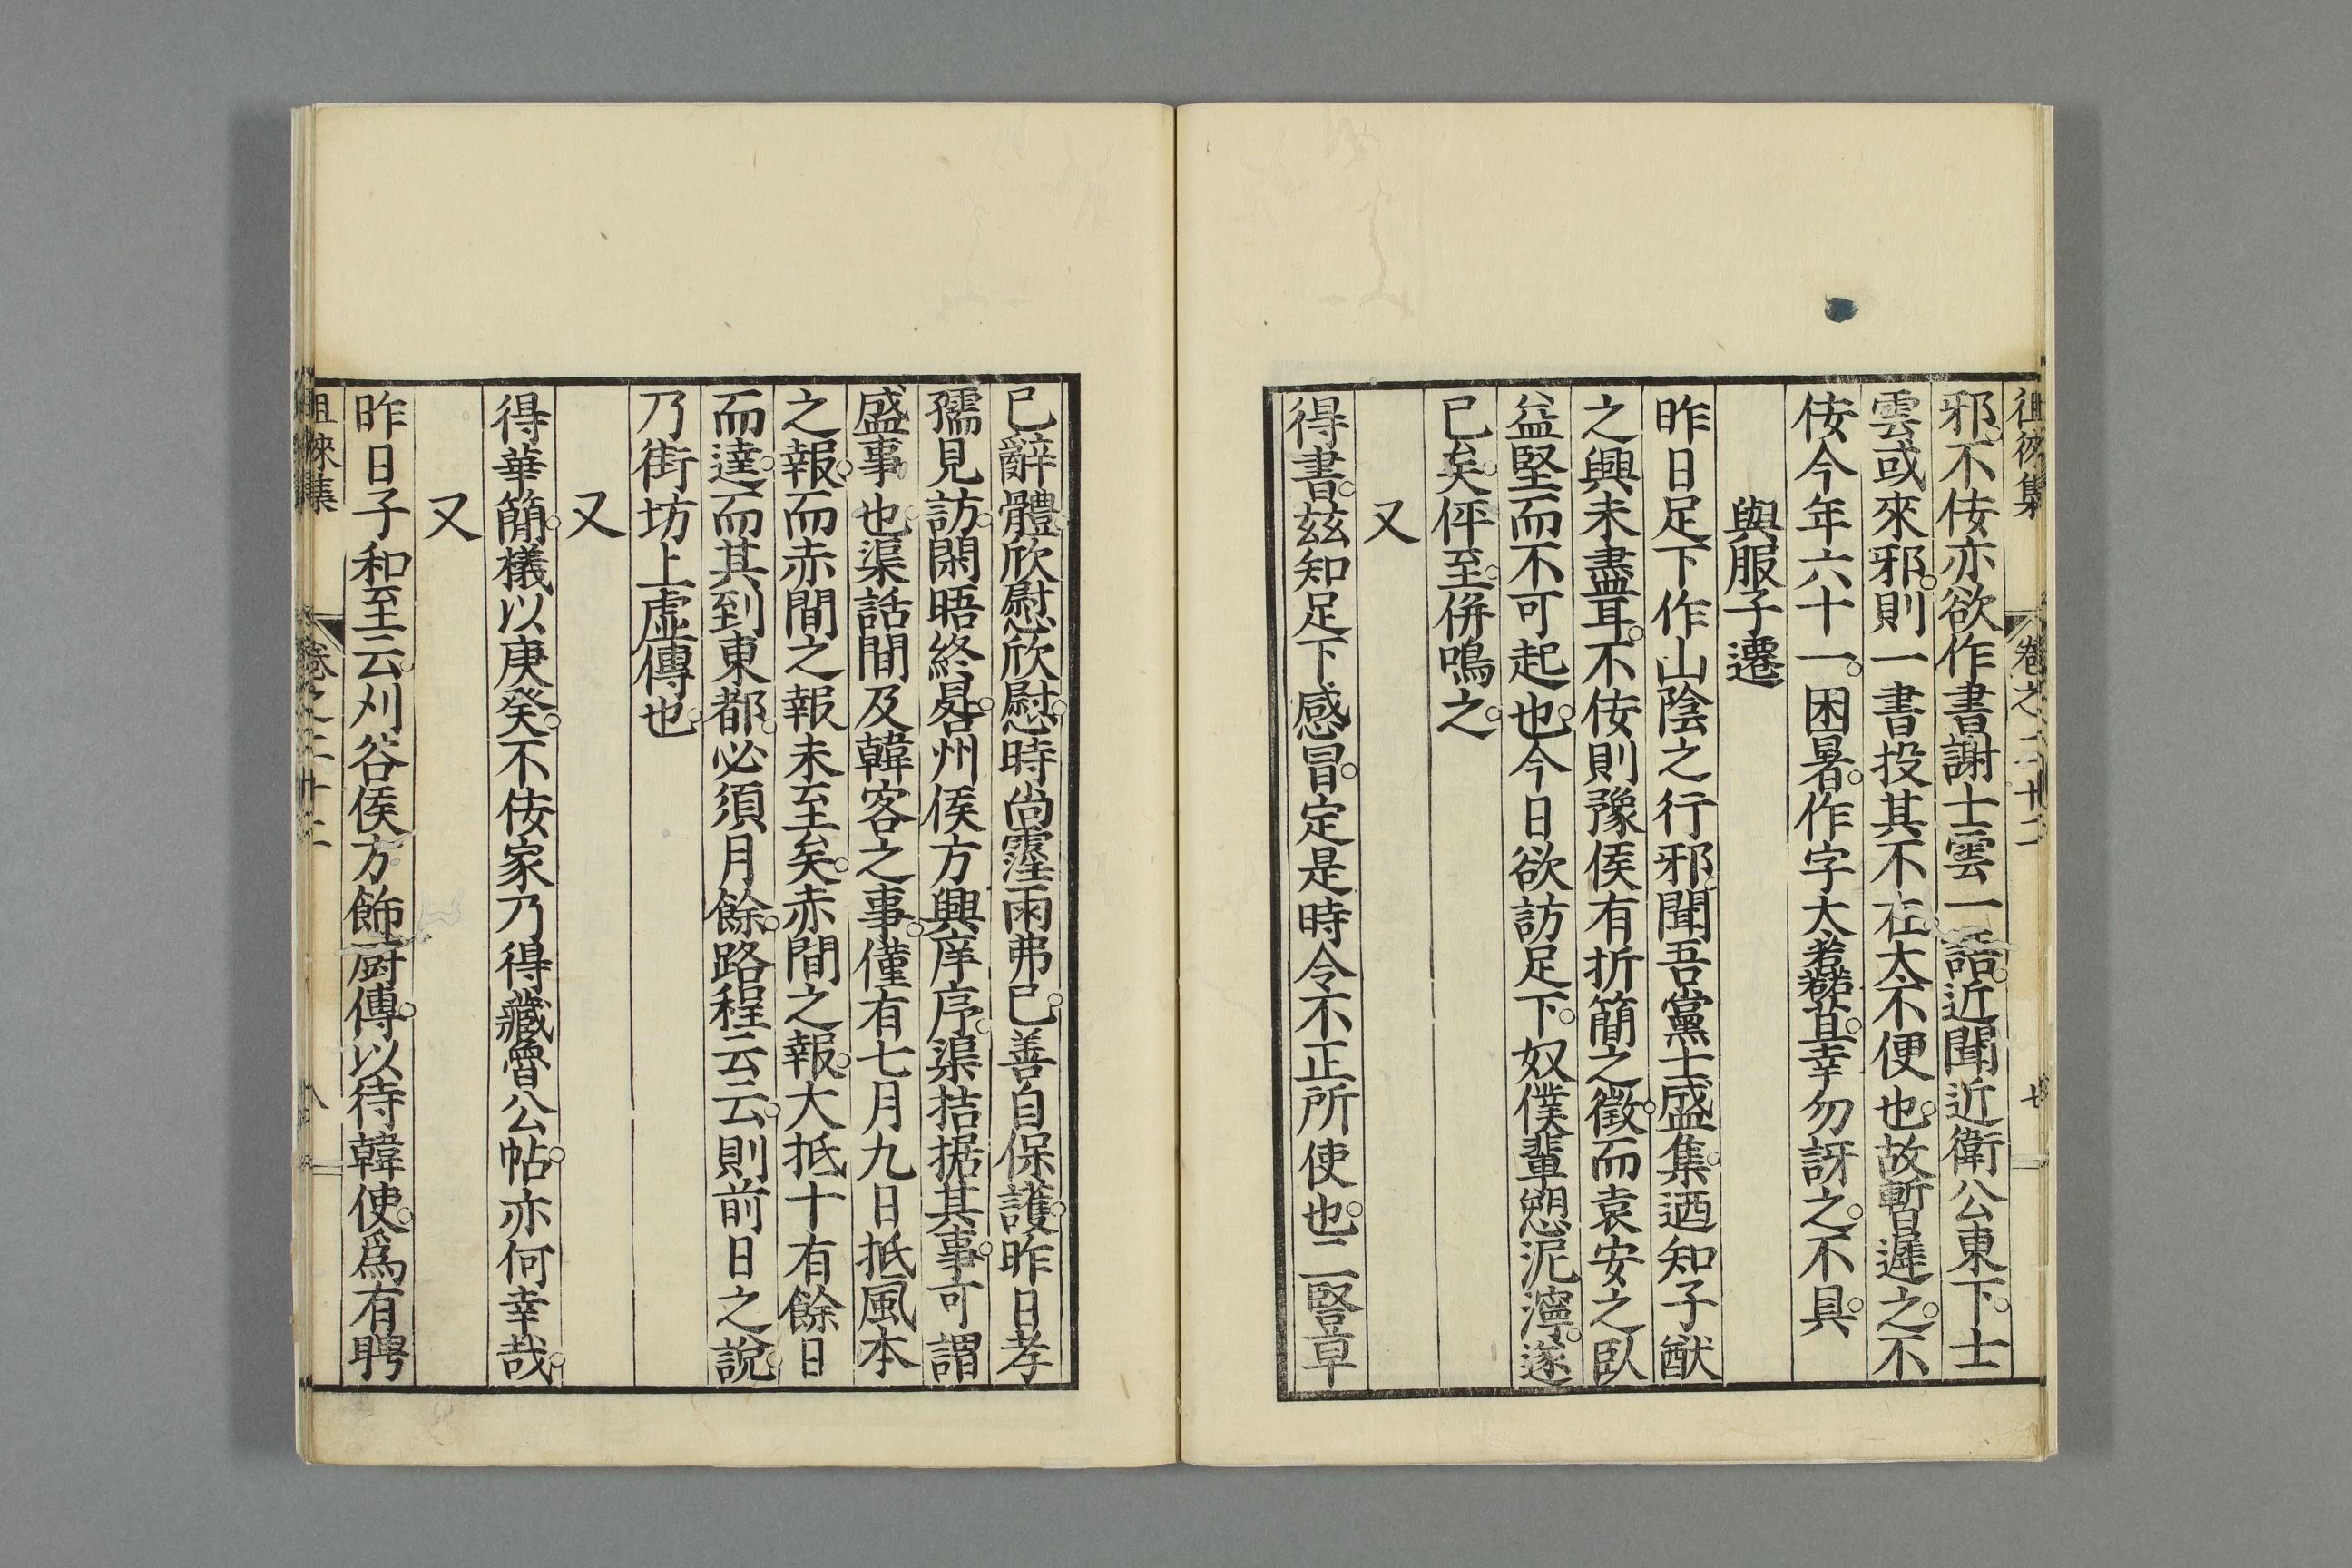 徂徠集 卷之二十二 七
邪。不佞亦欲作書謝士雲一語。近聞近衛公東下。士
雲或來邪。則一書投其不在太不便也。故暫遲之。不
佞今年六十一。困暑。作字大若懿苴。幸勿訝之。不具
與服子遷
昨日足下作山陰之行邪。聞吾黨士盛集。迺知子猷
之興未盡耳。不佞則豫侯有折簡之徵。而袁安之臥
益堅而不可起也。今日欲訪足下。奴僕輩愬泥濘。遂
已矣。伻至。併鳴之。
又
得書。玆知足下感冒。定是時令不正所使也。二豎草
已辭體。欣慰欣慰。時尚霪雨弗已。善自保護。昨日孝
孺見訪。閑晤終晷。岩州侯方興庠序。渠拮据其事。可謂
盛事也。渠話間及韓客之事。僅有七月九日抵風本
之報。而赤間之報未至矣。赤間之報。大抵十有餘日
而達。而其到東都。必須月餘。路程云云。則前日之說。
乃街坊上虛傳也。
又
得華簡。檥以庚癸。不佞家乃得藏魯公帖。亦何幸哉。
又
昨日子和至云。刈谷侯方飾厨傳。以待韓使。爲有聘
徂徠集 卷之二十二 八